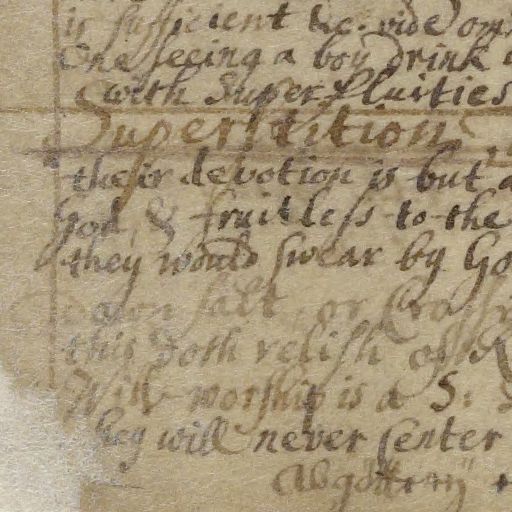 is sufficient &c. vide
One seeing a boy drink
with Superfluities
Superstition
their devotion is but a
God, & fruitless to the
they would swear by Go
down salt, or
this doth relish of
Will-worship is a S:
they will never center